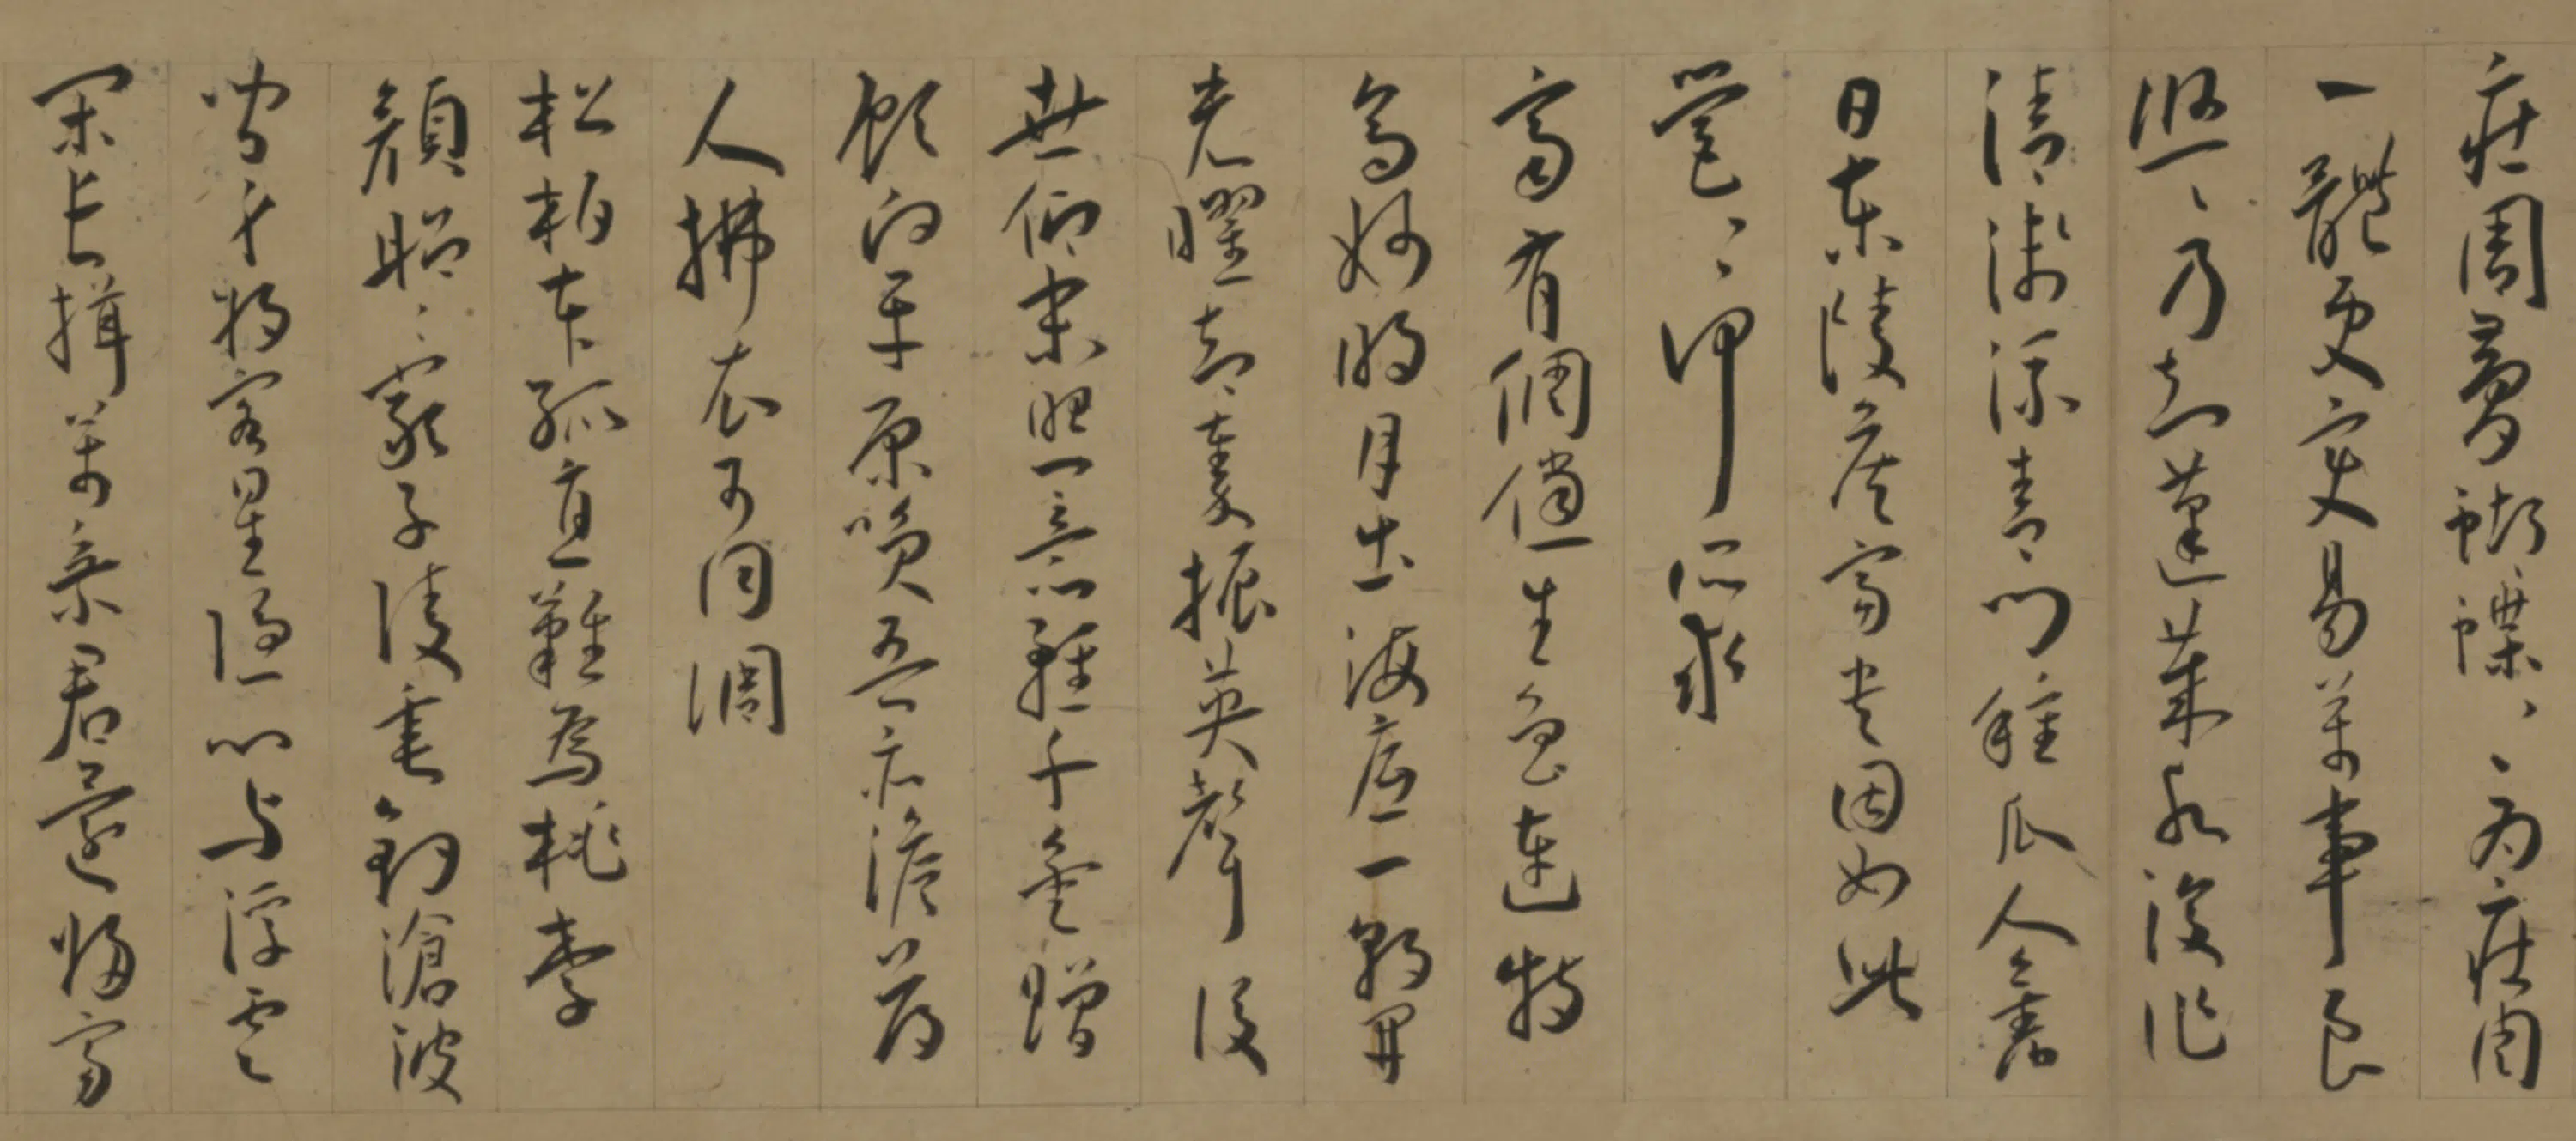 莊周夢蝴蝶、、為莊周
一體更變易萬事良
悠、乃知蓬萊水復作
清淺流青門種瓜人舊
日東陵侯富貴固如此
營、何所求
齊有倜儻生魯連特
高妙明月出海底一朝開
光曜却秦振英聲後
世仰末照意輕千金贈
顧向平原咲吾亦澹蕩
人拂衣可同調
松柏本孤直難為桃李
顏昭、嚴子陵垂釣滄波
間身將客星隱心与浮雲
閑長揖萬乘君還歸富